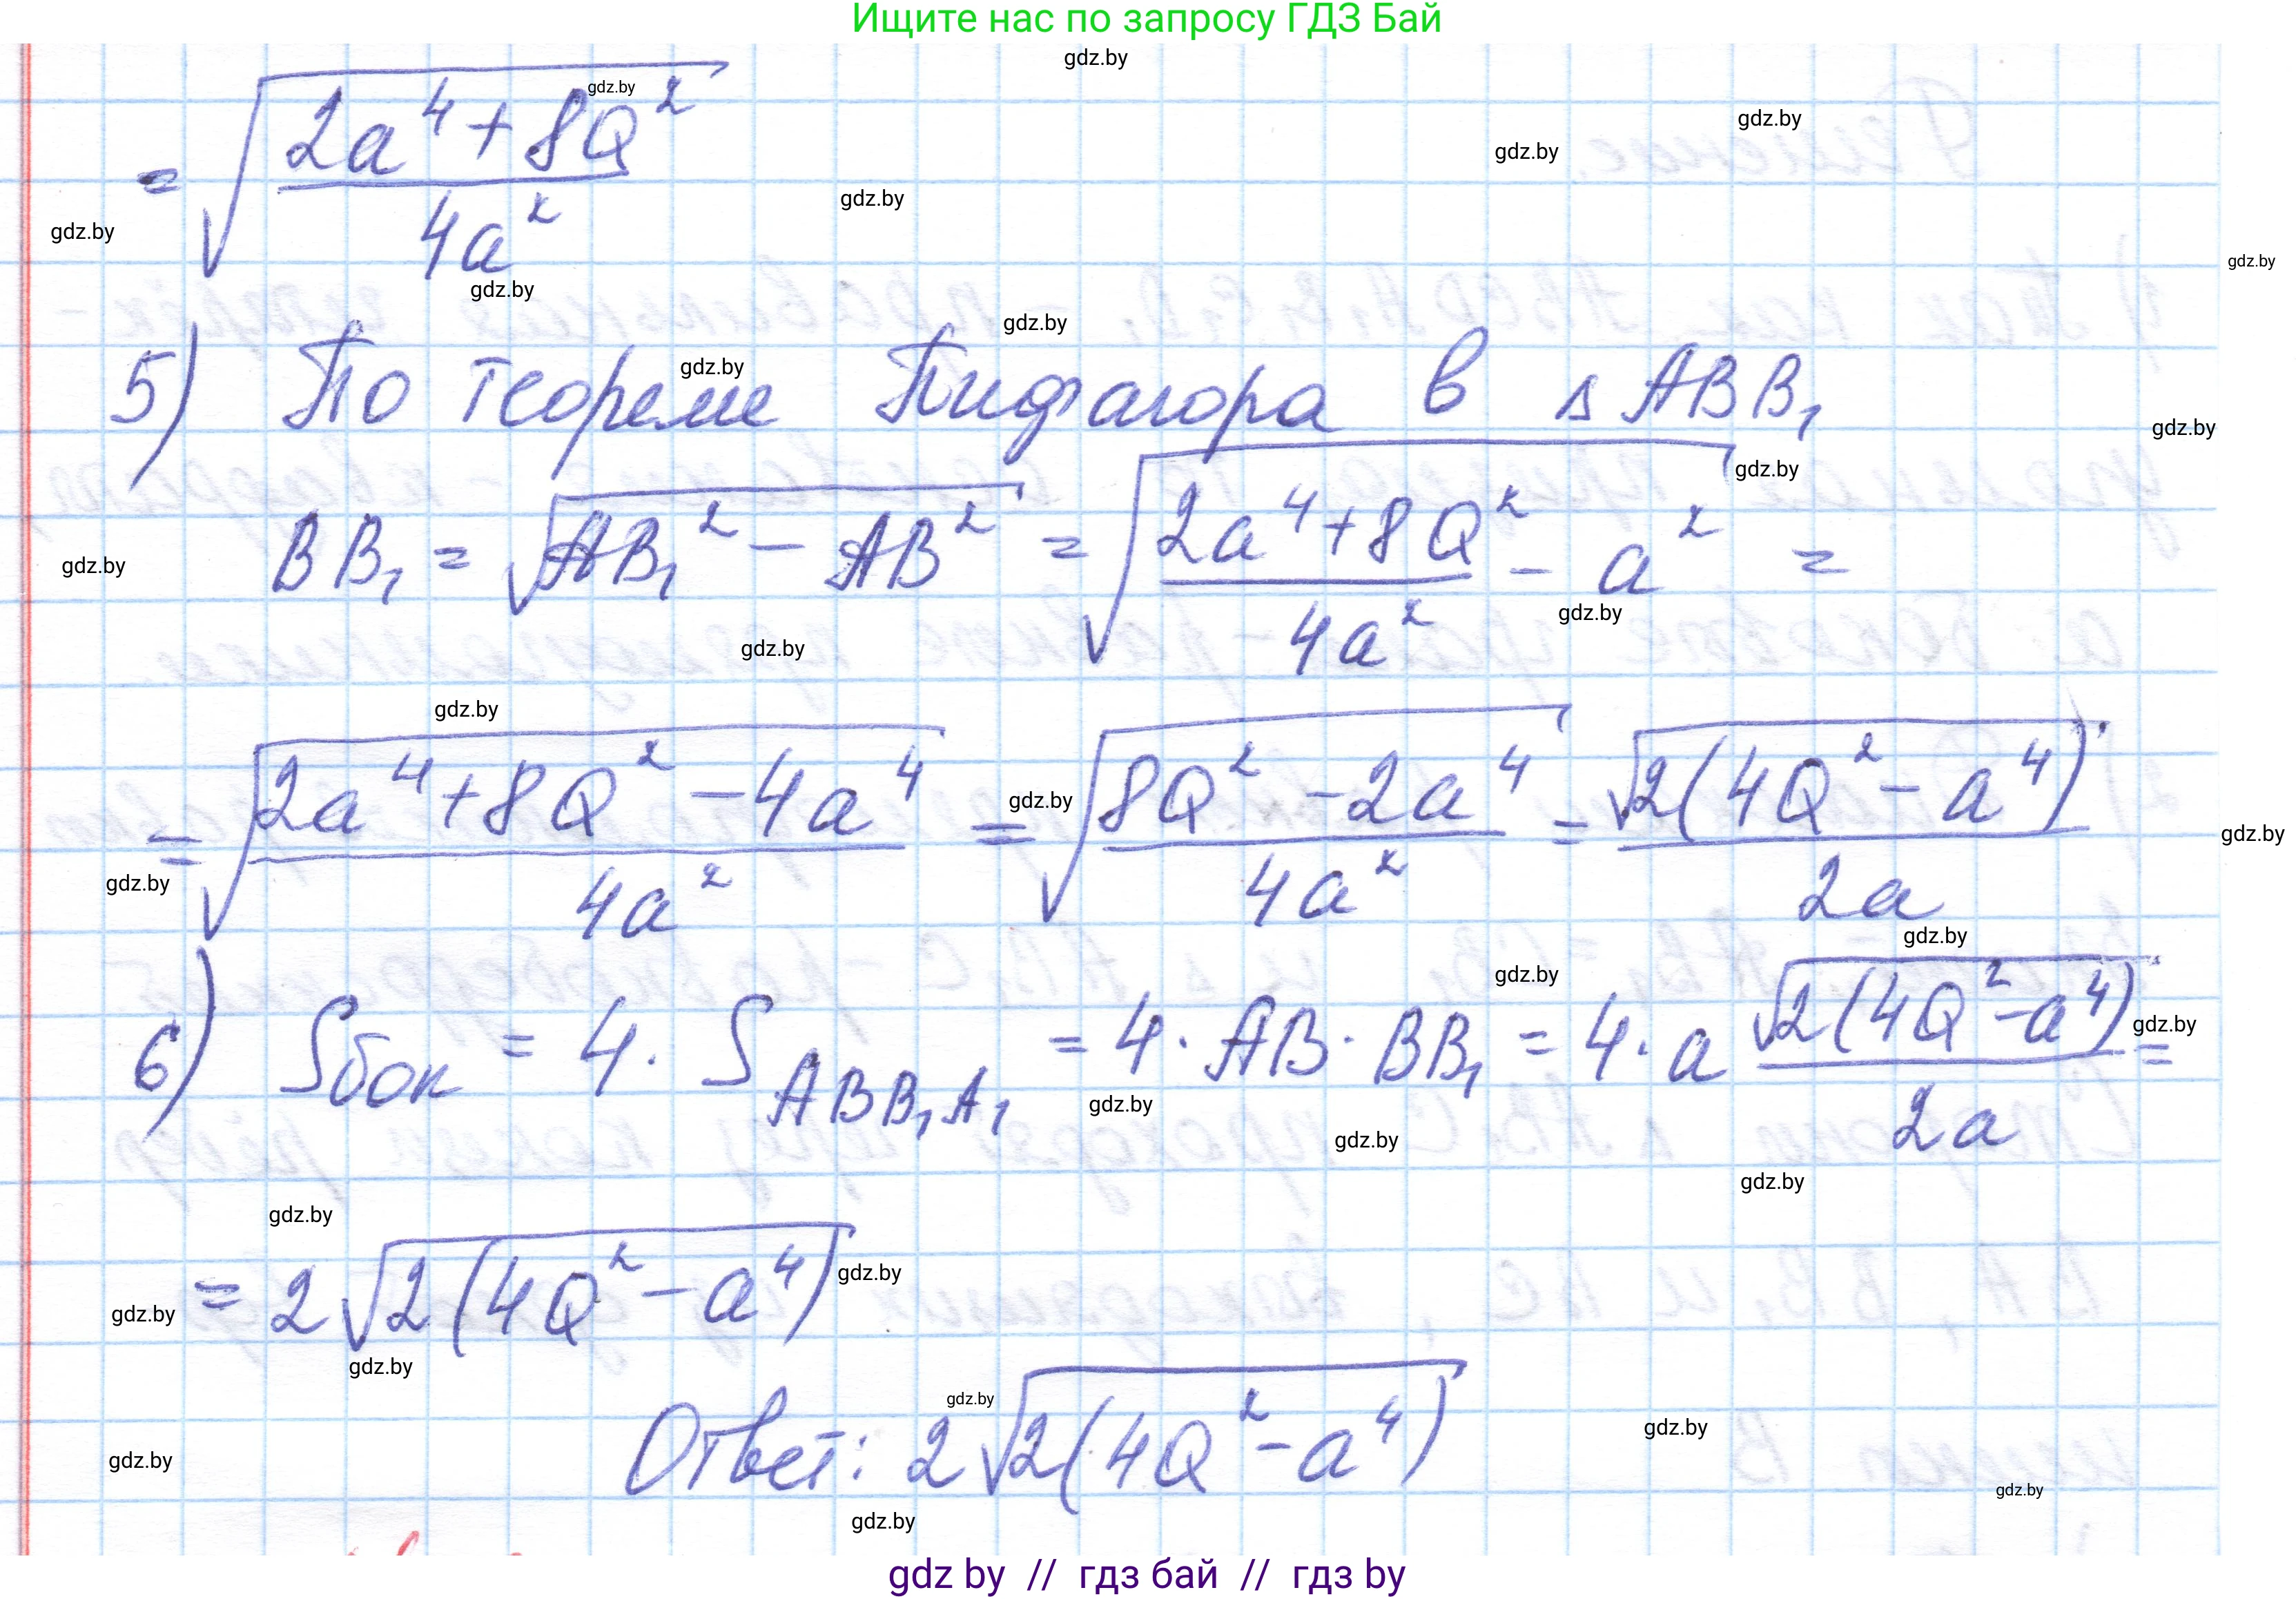 Ищите нас по запросу ГДЗ Бай
= √((2a⁴ + 8Q²)/(4a²))
5) По теореме Пифагора в △ABB₁
BB₁ = √(AB₁² − AB²) = √((2a⁴ + 8Q²)/(4a²) − a²) =
= √((2a⁴ + 8Q² − 4a⁴)/(4a²)) = √((8Q² − 2a⁴)/(4a²)) = √(2(4Q² − a⁴))/(2a)
6) Sбок = 4 · S_ABB₁A₁ = 4 · AB · BB₁ = 4 · a √(2(4Q² − a⁴))/(2a) =
= 2√(2(4Q² − a⁴))
Ответ: 2√(2(4Q² − a⁴))
gdz by // гдз бай // гдз by